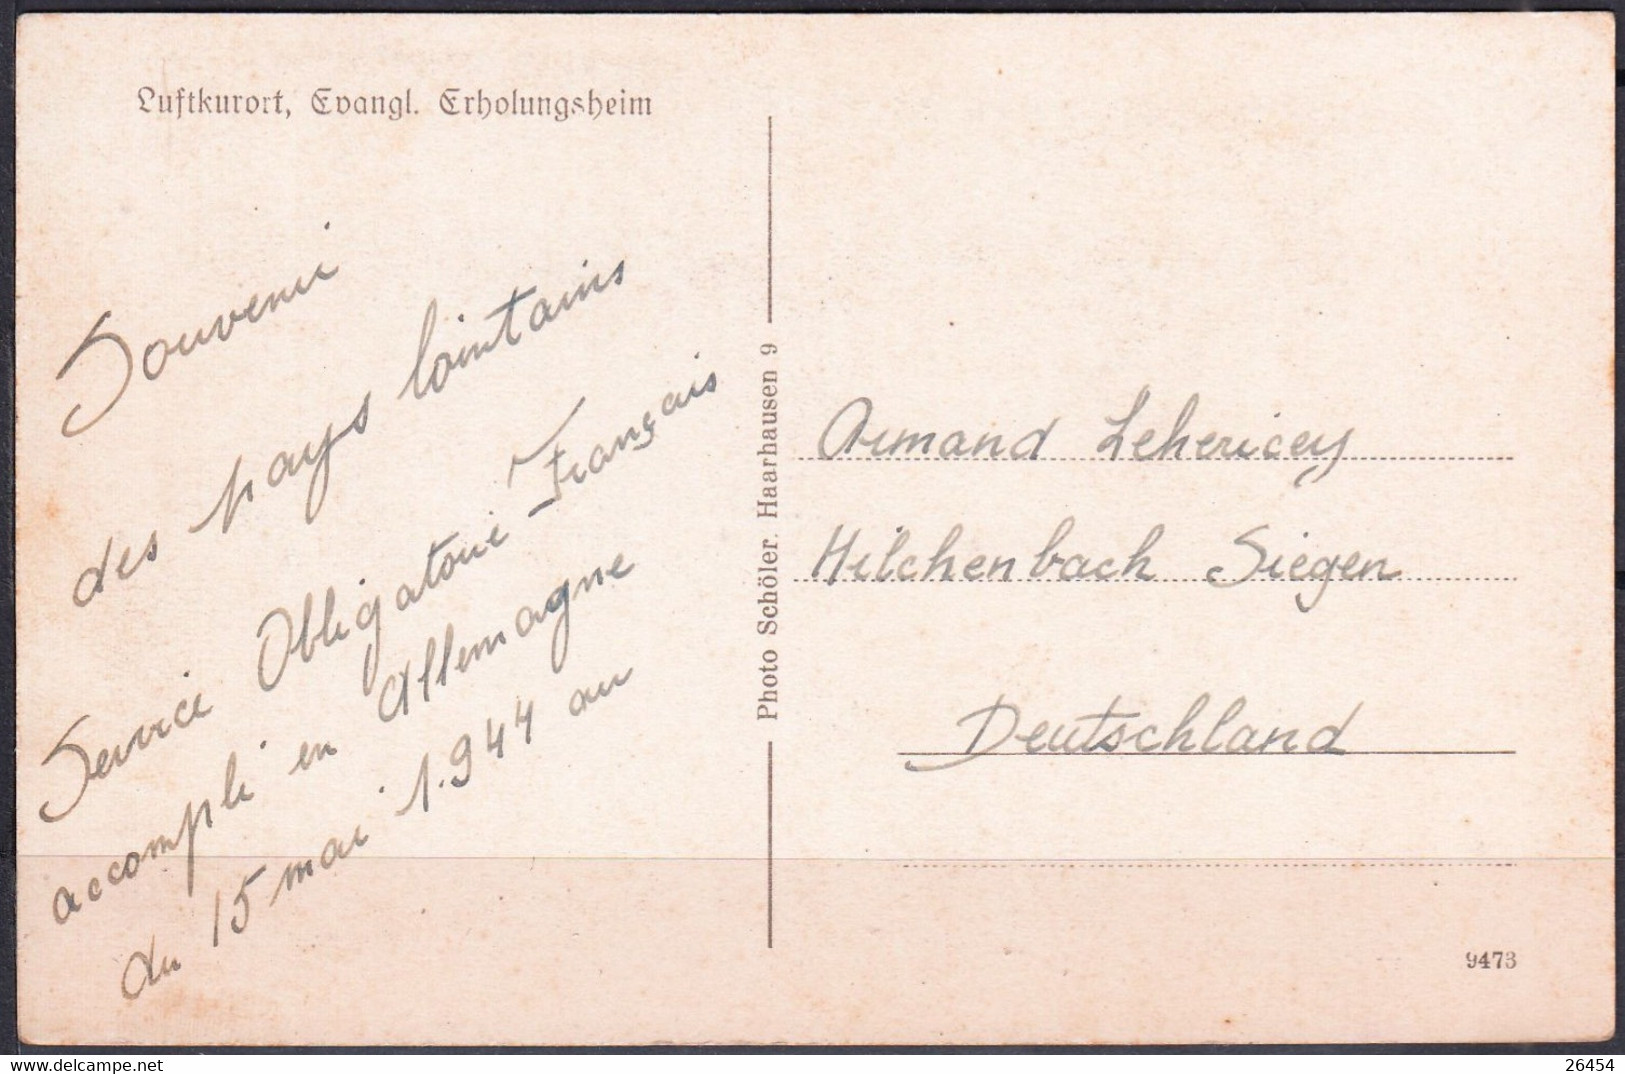 Luftkurort, Evangl. Erholungsheim
Souvenir
des pays lointains
Service Obligatoire Français
accompli en Allemagne
du 15 mai 1.944 au
Photo Schöler. Haarhausen 9
Armand Lehericey
Hilchenbach Siegen
Deutschland
9473
delcampe.net
26454